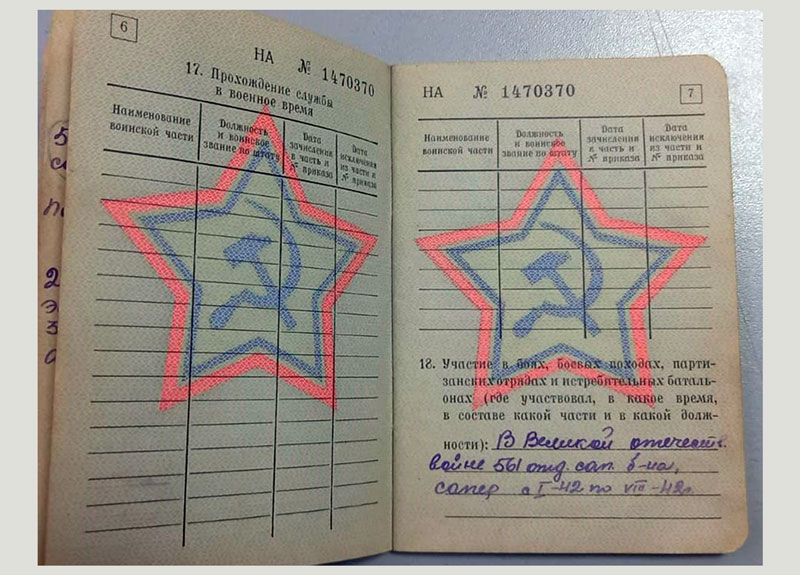 6
НА № 1470370
17. Прохождение службы
в военное время
Наименование
воинской части
Должность
и воинское
звание по штату
Дата
зачисления
в часть и
№ приказа
Дата
исключения
из части и
№ приказа
НА № 1470370
7
Наименование
воинской части
Должность
и воинское
звание по штату
Дата
зачисления
в часть и
№ приказа
Дата исключения
из части и
№ приказа
18. Участие в боях, боевых походах, парти-
занских отрядах и истребительных баталь-
онах (где участвовал, в какое время,
в составе какой части и в какой долж-
ности): В Великой отечеств.
войне 561 отд. сап. б-на,
сапер с I-42 по VIII-42г.